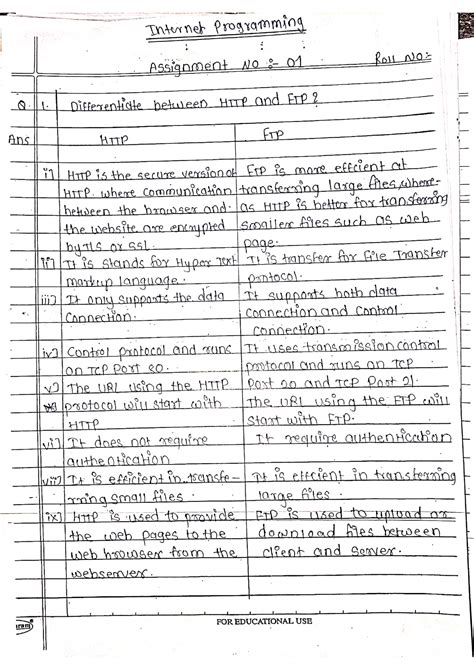 Internet Programming
Assignment No :- 01
Roll No:-
Q. 1. Differentiate between HTTP and FTP?
Ans
HTTP
FTP
i] HTTP is the secure version of
HTTP. where communication
between the browser and
the website are encrypted
by TLS or SSL.
FTP is more effcient at
transferring large files, where-
as HTTP is better for transferring
smaller files such as web
page.
ii] It is stands for Hyper Text
markup language.
It is transfer for File Transfer
protocol.
iii] It only supports the data
connection.
It supports both data
connection and control
connection.
iv] Control protocol and runs
on TCP Port 80.
It uses transmission control
protocol and runs on TCP
Port 20 and TCP Port 21.
v] The URL using the HTTP
protocol will start with
HTTP
The URL using the FTP will
start with FTP.
vi] It does not require
authentication
It require authentication
vii] It is efficient in transfe-
rring small files.
It is effcient in transferring
large files.
ix] HTTP is used to provide
the web pages to the
web browser from the
webserver.
FTP is used to upload or
download files between
client and server.
FOR EDUCATIONAL USE